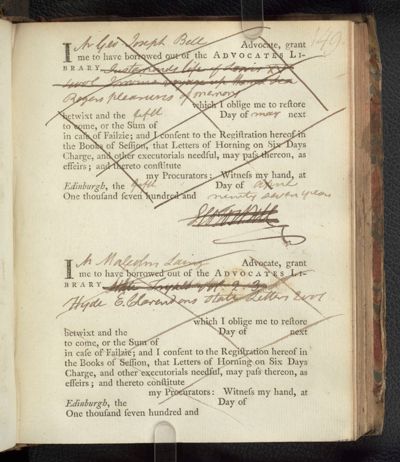 149.
I Mr Geo Joseph Bell Advocate, grant
me to have borrowed out of the ADVOCATES LI-
BRARY life of
voyage
Rogers pleasures of memory
which I oblige me to reſtore
betwixt and the fifth Day of may next
to come, or the Sum of
in caſe of Failzie; and I conſent to the Regiſtration hereof in
the Books of Seſſion, that Letters of Horning on Six Days
Charge, and other executorials needful, may paſs thereon, as
effeirs; and thereto conſtitute
my Procurators: Witneſs my hand, at
Edinburgh, the fifth Day of
One thouſand ſeven hundred and ninety seven years
Geo Jos Bell
I Mr Malcolm Laing Advocate, grant
me to have borrowed out of the ADVOCATES LI-
BRARY State 2. 3.
Hyde E. Clarendons State Letters 2 vol
which I oblige me to reſtore
betwixt and the Day of next
to come, or the Sum of
in caſe of Failzie; and I conſent to the Regiſtration hereof in
the Books of Seſſion, that Letters of Horning on Six Days
Charge, and other executorials needful, may paſs thereon, as
effeirs; and thereto conſtitute
my Procurators: Witneſs my hand, at
Edinburgh, the Day of
One thouſand ſeven hundred and